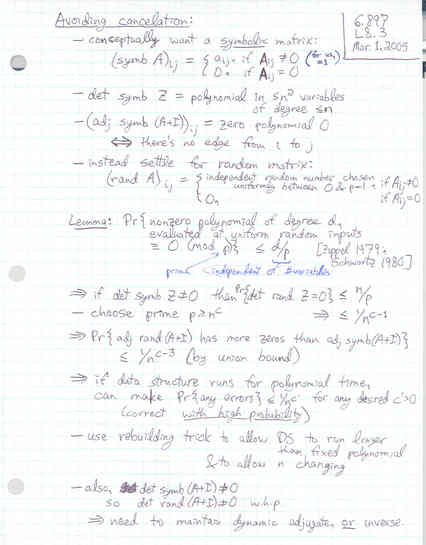 Avoiding cancelation:
6.897
L8.3
Mar. 1, 2005
- conceptually want a symbolic matrix:
(symb A)ij = { aij, if Aij ≠ 0
0, if Aij = 0
- det symb Z = polynomial in ≤n² variables
of degree ≤n
- (adj symb (A+I))ij = zero polynomial 0
⇔ there's no edge from i to j
- instead settle for random matrix:
(rand A)ij = { independent random number chosen
uniformly between 0 & p-1, if Aij≠0
0, if Aij=0
Lemma: Pr{nonzero polynomial of degree d,
evaluated at uniform random inputs
≡ 0 (mod p)} ≤ d/p [Zippel 1979,
Schwartz 1980]
prime independent of # variables
⇒ if det symb Z≠0 then Pr{det rand Z=0} ≤ n/p
- choose prime p≥n^c ⇒ ≤ 1/n^c-1
⇒ Pr{adj rand(A+I) has more zeros than adj symb(A+I)}
≤ 1/n^c-3 (by union bound)
⇒ if data structure runs for polynomial time,
can make Pr{any errors} ≤ 1/n^c' for any desired c'>0
(correct with high probability)
- use rebuilding trick to allow DS to run longer
than fixed polynomial
& to allow n changing
- also, det symb(A+I)≠0
so det rand(A+I)≠0 w.h.p.
⇒ need to maintain dynamic adjugate or inverse